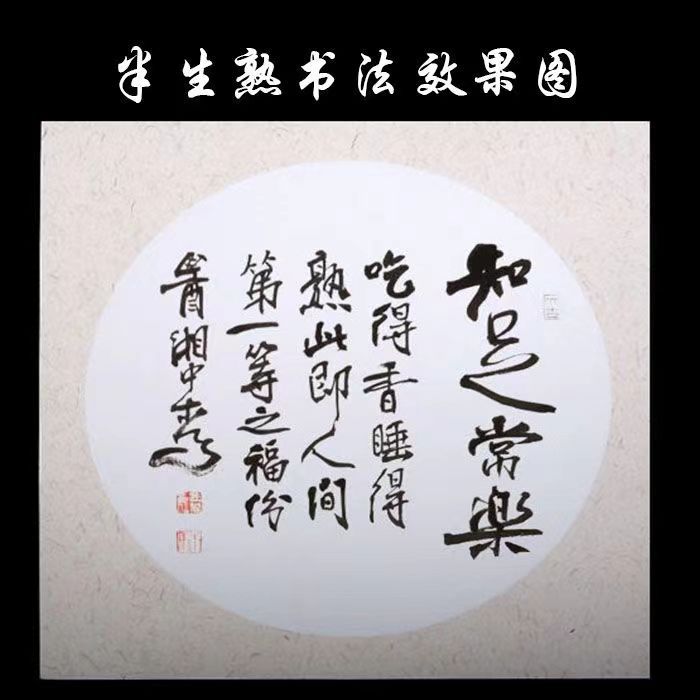 半生熟书法效果图
知足常樂
吃得香睡得
熟此即人间
第一等之福份
湘中